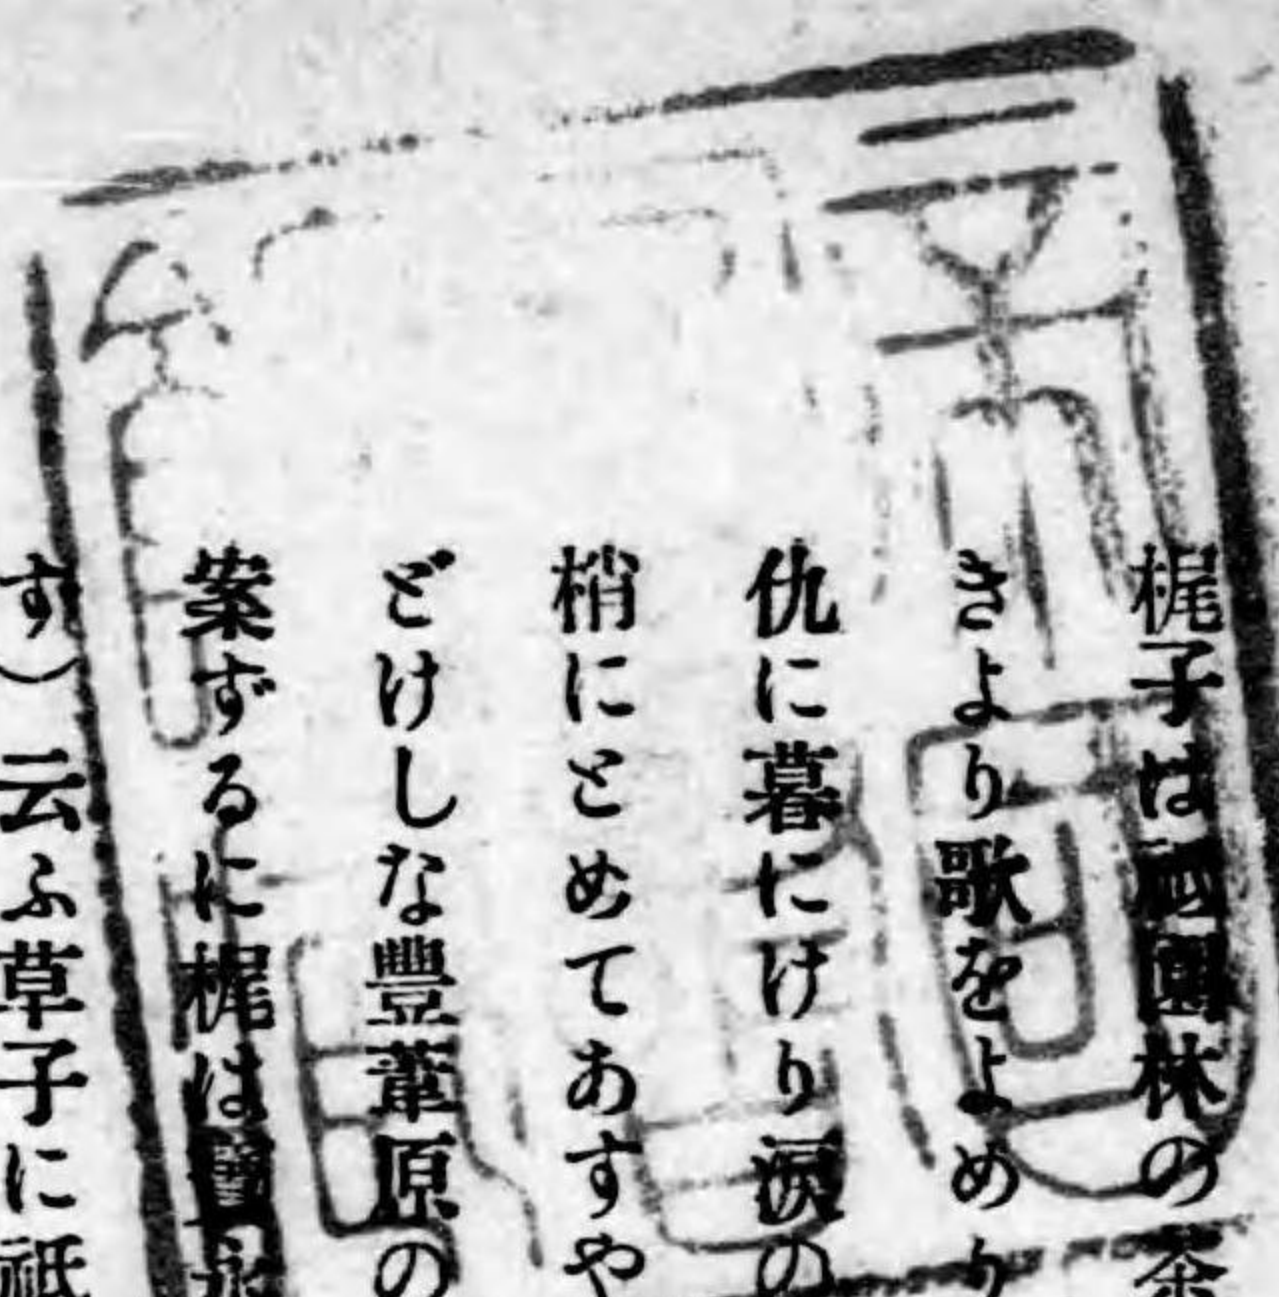 梶子は祗園林の茶
きより歌をよめり
仇に暮にけり涙の
梢にとめてあすや
どけしな豊葦原の
案ずるに梶は寶永
す)云ふ草子に祗